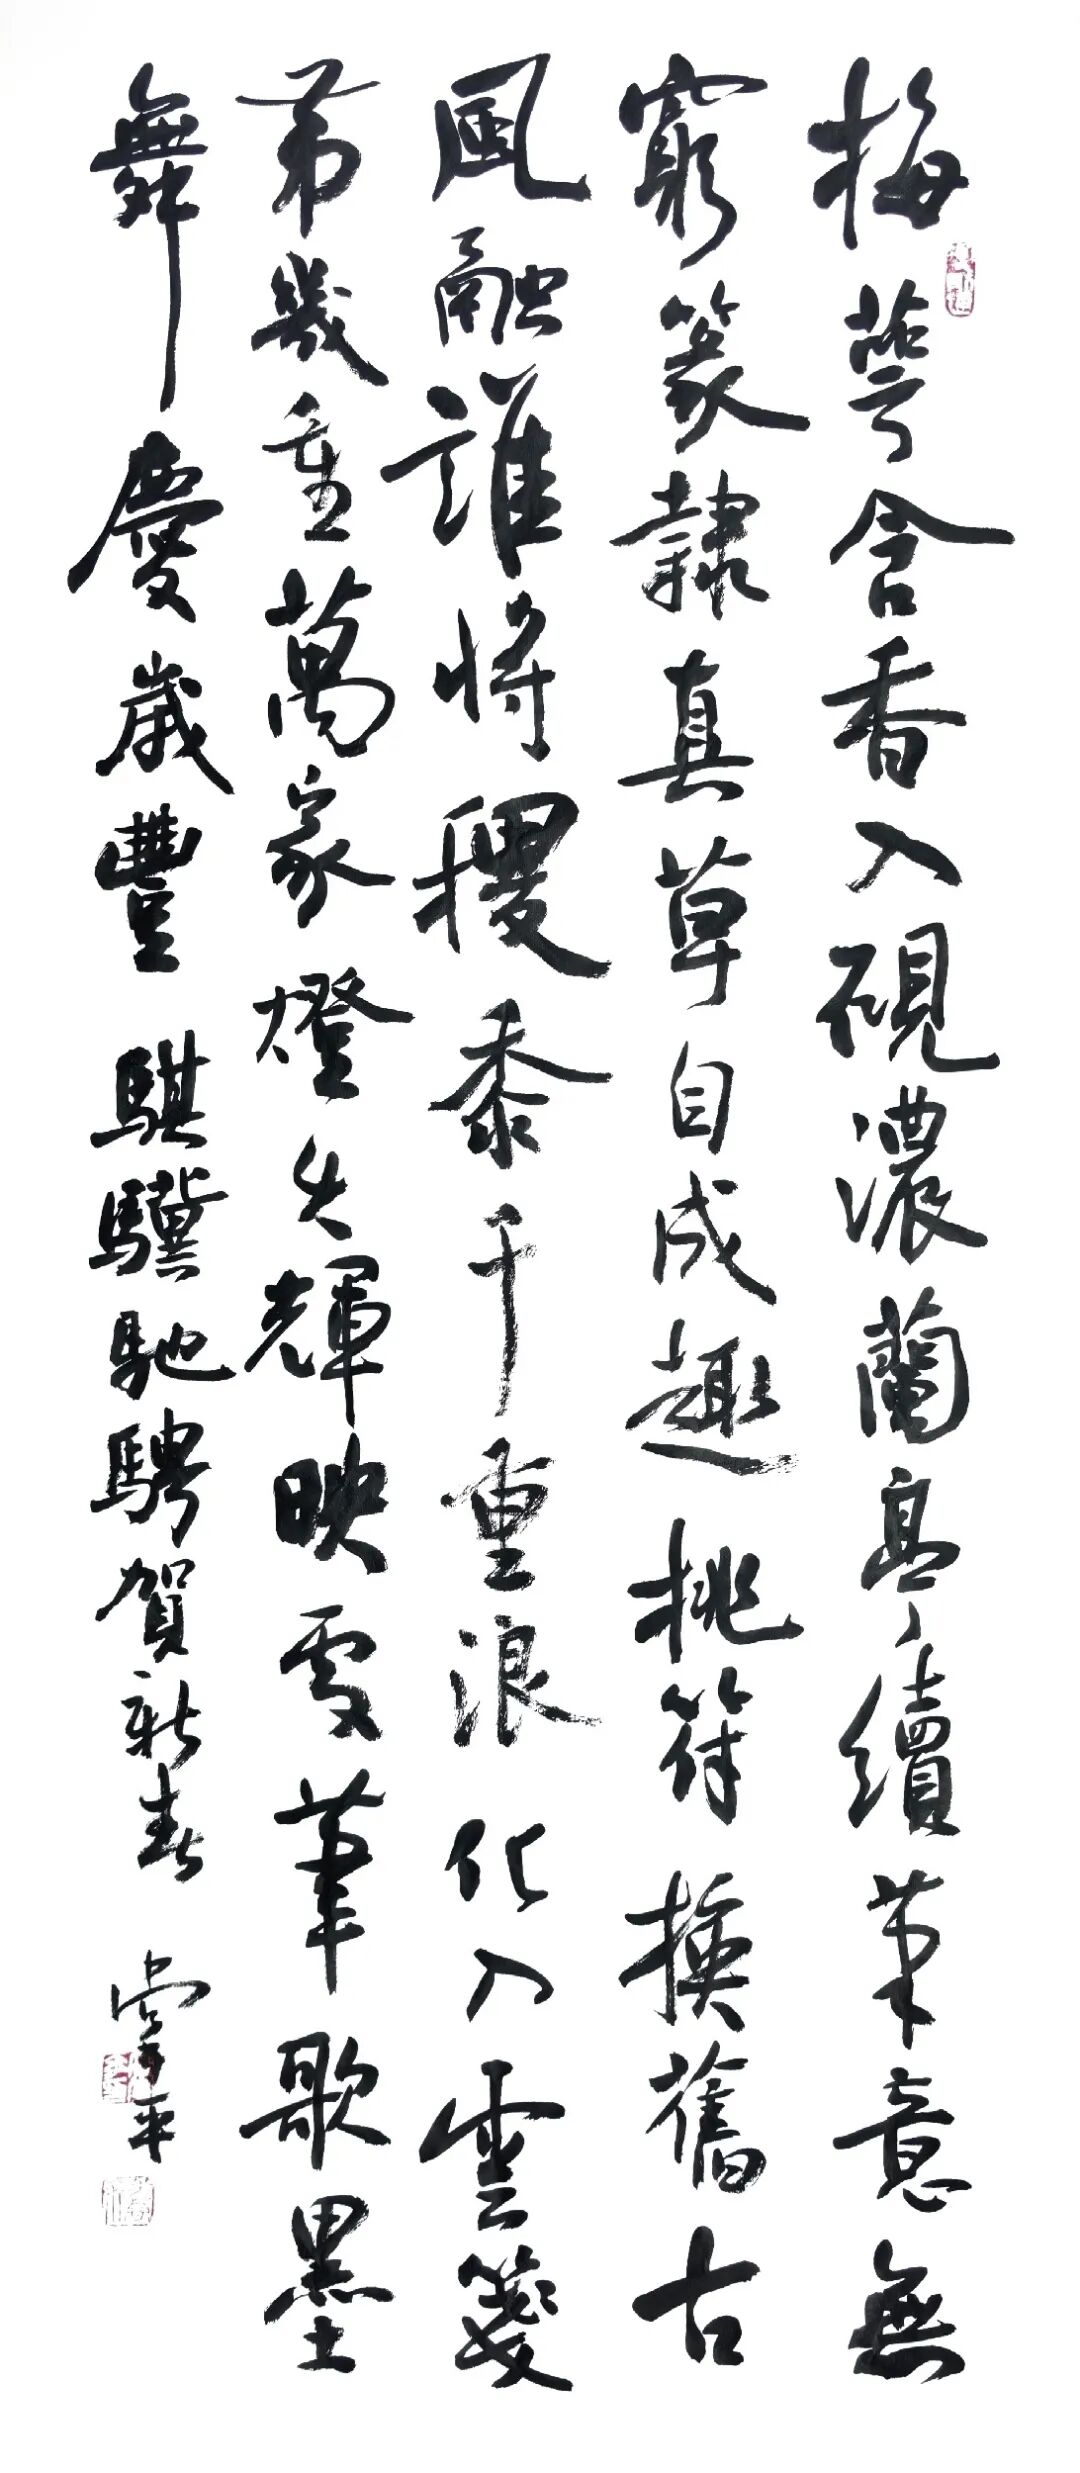 梅萼含香入硯濃蘭亭續筆意無
窮篆隸真草自成趣桃符換舊古
風融誰將稷黍千重浪化入雲箋
第幾重萬家燈火輝映處筆歌墨
舞慶歲豐騏驥馳騁賀新春